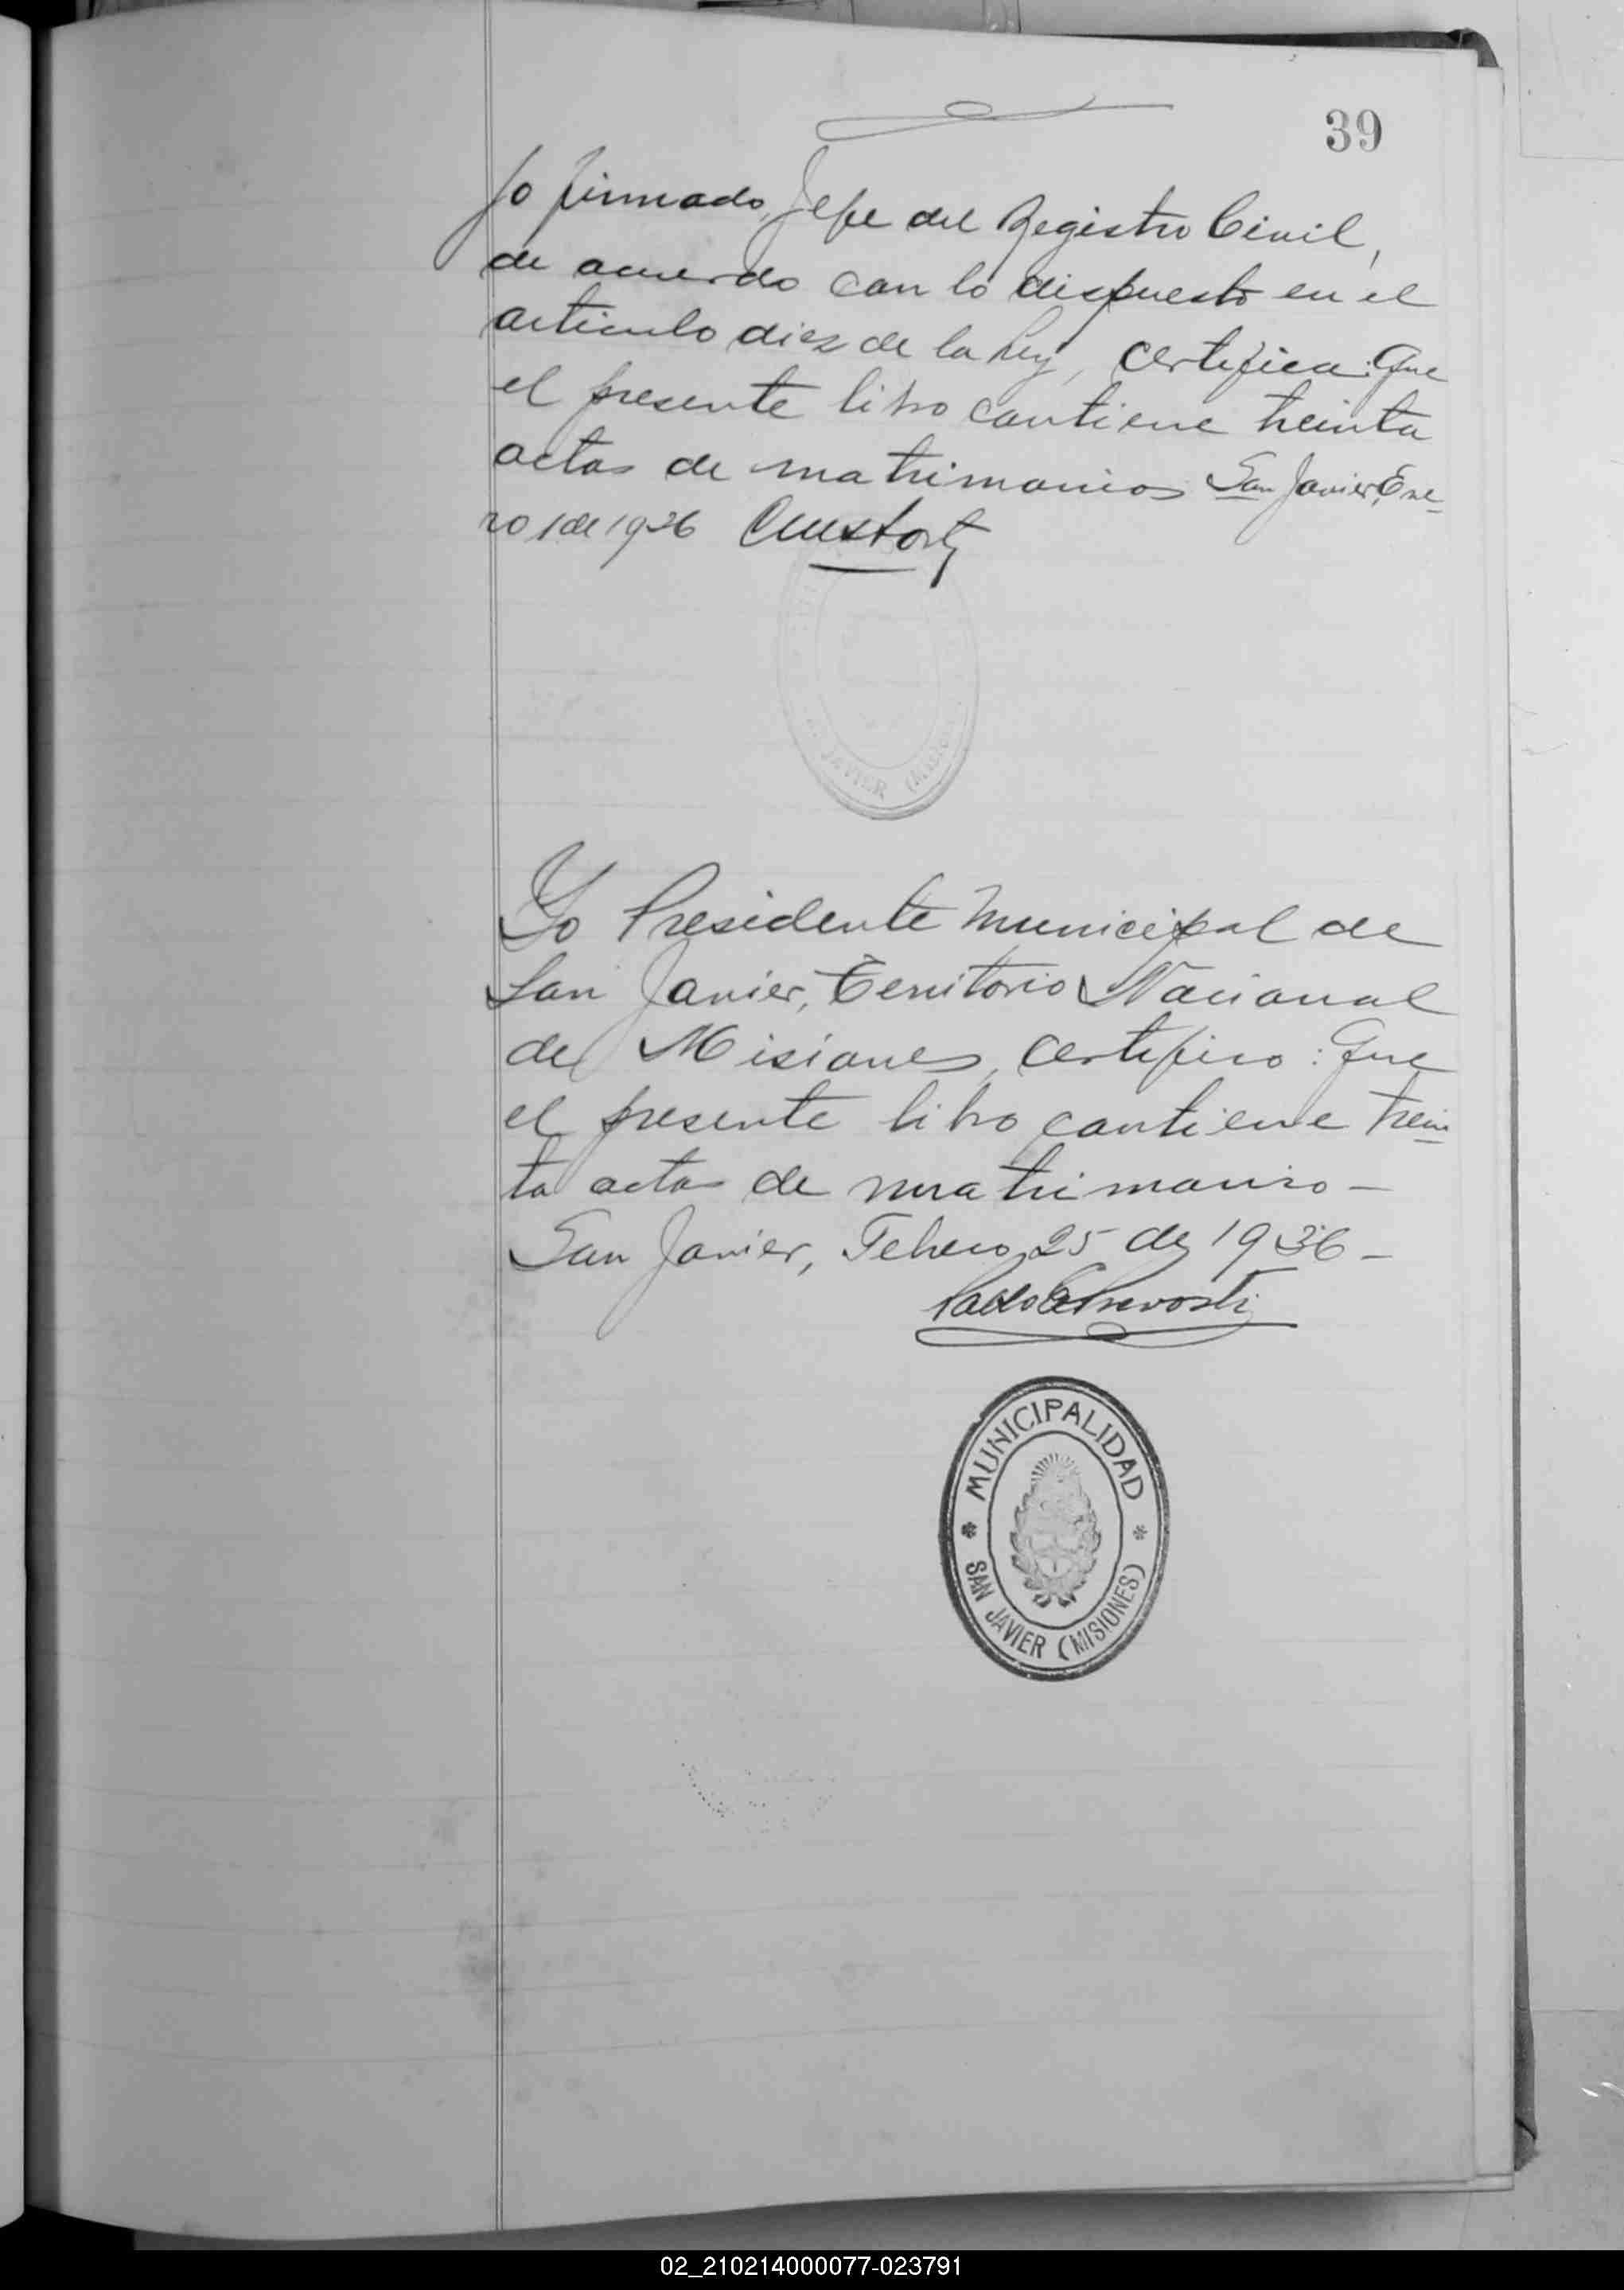 39
Yo firmado, Jefe del Registro Civil,
de acuerdo con lo dispuesto en el
articulo diez de la Ley, certifica: Que
el presente libro contiene treinta
actas de matrimonios San Javier, Ene-
ro 1 de 1936
JAVIER
Yo Presidente Municipal de
San Javier, Territorio Nacional
de Misiones, certifico: Que
el presente libro contiene trein-
ta actas de matrimonio -
San Javier, Febrero 25 de 1936 -
MUNICIPALIDAD
SAN JAVIER (MISIONES)
02_210214000077-023791